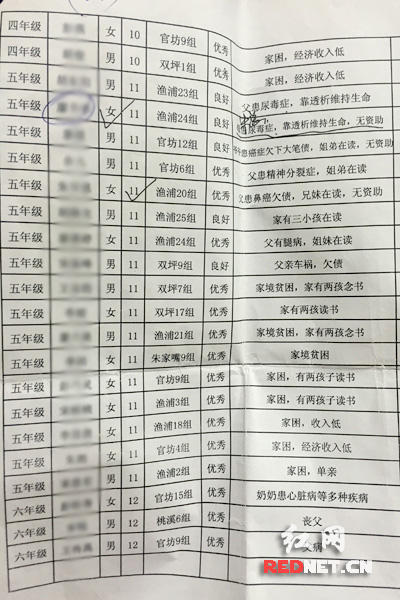 四年级 女 10 官坊1组 优秀 家困，经济收入低
四年级 男 10 双坪1组 优秀 家困，经济收入低
五年级 男 11 渔浦23组 良好 父患尿毒症，靠透析维持生命
五年级 女 11 渔浦24组 良好 尿毒症，靠透析维持生命，无资助
五年级 男 11 官坊12组 优秀 患癌症欠下大笔债，姐弟在读
五年级 男 11 官坊6组 优秀 父患精神分裂症，姐弟在读
五年级 女 11 渔浦20组 优秀 父患鼻癌欠债，兄妹在读，无资助
五年级 男 11 渔浦25组 良好 家有三小孩在读
五年级 女 11 渔浦24组 优秀 父有腿病，姐妹在读
五年级 男 11 双坪9组 良好 父亲车祸，欠债
五年级 男 11 双坪7组 优秀 家境贫困，家有两孩念书
五年级 女 11 双坪17组 优秀 家有两孩读书
五年级 男 11 渔浦21组 优秀 家境贫困，家有两孩念书
五年级 女 11 朱家嘴9组 优秀 家境贫困
五年级 女 11 官坊9组 优秀 家困，有两孩子读书
五年级 女 11 渔浦3组 优秀 家困，有两孩子读书
五年级 女 11 渔浦18组 优秀 家困，收入低
五年级 女 11 官坊4组 优秀 家困，经济收入低
五年级 男 11 渔浦2组 优秀 家困，单亲
六年级 女 12 官坊15组 优秀 奶奶患心脏病等多种疾病
六年级 男 12 桃溪6组 优秀 丧父
六年级 男 12 官坊9组 优秀 父病
红网
REDNET.CN